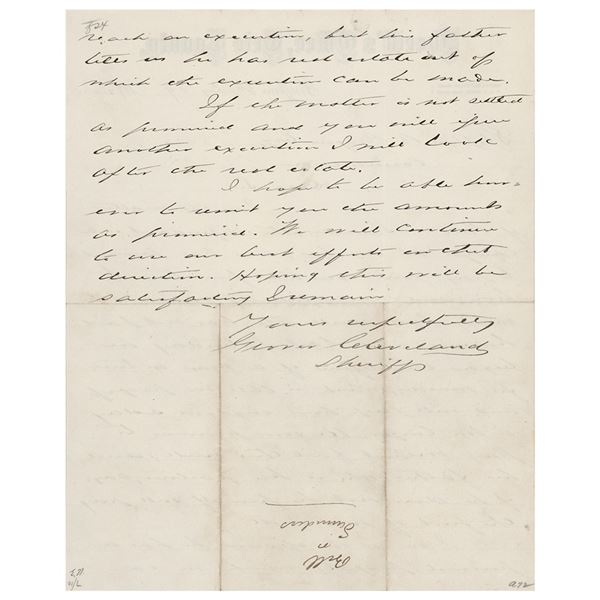 $24
reach an execution, but his father
tells us he has real estate out of
which the execution can be made.
If the matter is not settled
as promised and you will issue
another execution I will look
after the real estate.
I hope to be able how-
ever to remit you the amounts
as promised. We will continue
to use our best efforts in that
direction. Hoping this will be
satisfactory I remain
Yours respectfully
Grover Cleveland
Sheriff
Bell
vs
Saunders